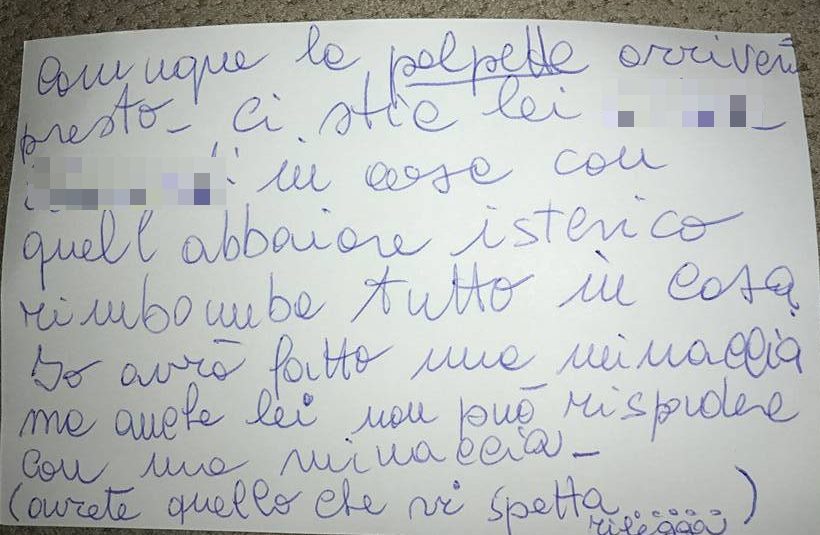 Comunque la polpetta arriverà
presto - Ci stia lei
in casa con
quell abbaiare isterico
rimbomba tutto in casa
Io avrò fatto una minaccia
ma anche lei non può rispondere
con una minaccia -
(avrete quello che vi spetta........)